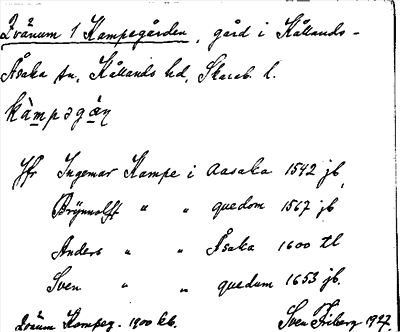 Qvänum 1 Kampegården, gård i Kållands-
Åsaka sn, Kållands hd, Skarab. l.
kàmpəgǻn
Jfr Ingemar Kampe i Aasaka 1542 jb,
Brynnolff " " quedom 1567 jb
Anders " " Åsaka 1600 tl
Sven " " quedum 1653 jb.
Qvänum Kampeg. 1900 kb. Sven Friberg 1927.